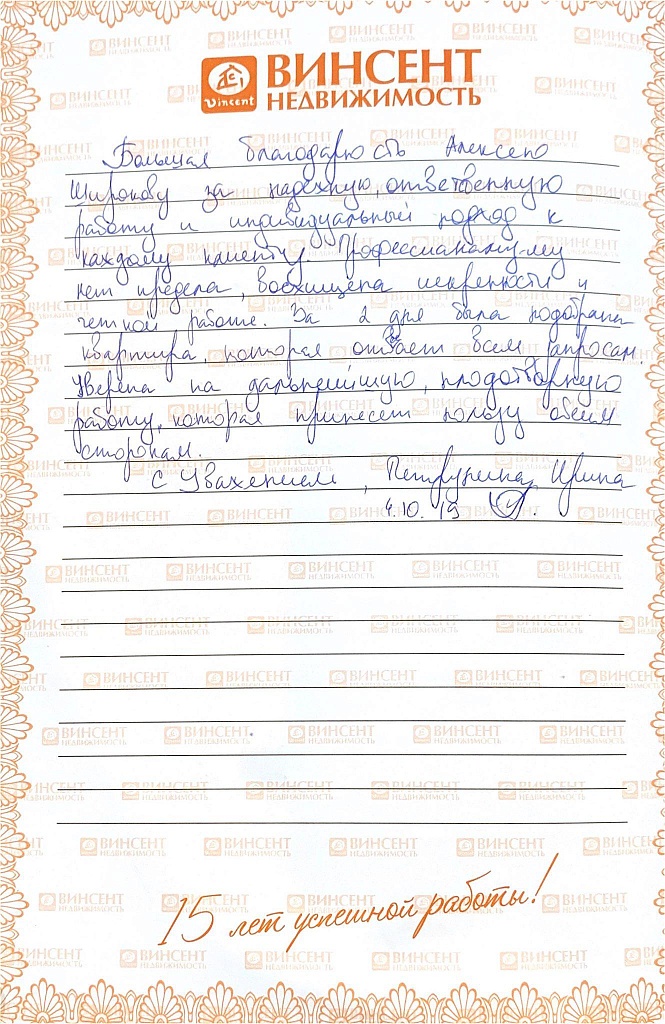 ВИНСЕНТ
НЕДВИЖИМОСТЬ
Vincent
Большая благодарность Алексею
Широкову за надежную, ответственную
работу и индивидуальный подход к
каждому клиенту. Профессионализму
нет предела, восхищена искренности и
четкой работе. За 2 дня была подобрана
квартира, которая отвечает всем запросам.
Уверена на дальнейшую, плодотворную
работу, которая принесет пользу обеим
сторонам.
С Уважением, Петрунина Ирина
4.10.19
15 лет успешной работы!